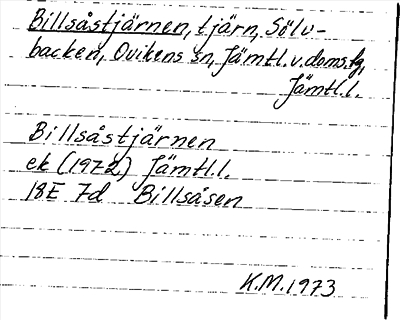 Billsåstjärnen, tjärn, Sölv-
backen, Ovikens sn, Jämtl. v. doms.fg,
Jämtl. l.
Billsåstjärnen
ek (1972) Jämtl. l.
18E 7d Billsåsen
K.M. 1973